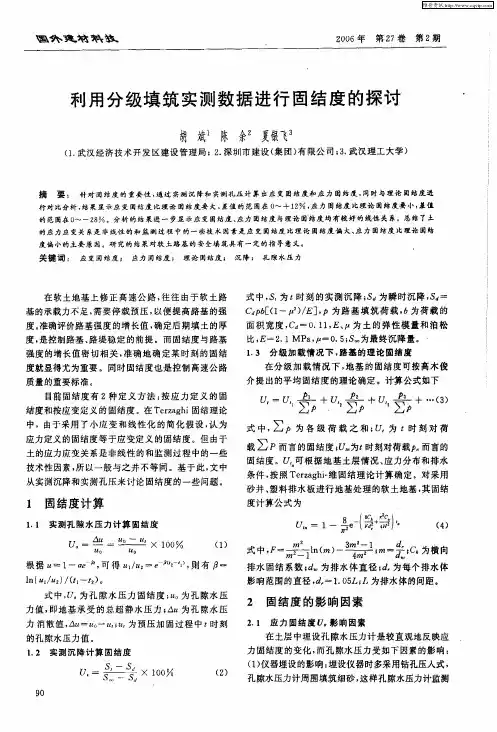 维普资讯 http://www.cqvip.com
国外建材科技
2006年 第27卷 第2期
利用分级填筑实测数据进行固结度的探讨
胡 斌1 陈 余2 夏银飞3
(1.武汉经济技术开发区建设管理局;2.深圳市建设(集团)有限公司;3.武汉理工大学)
摘 要: 针对固结度的重要性,通过实测沉降和实测孔压计算出应变固结度和应力固结度,同时与理论固结度进
行对比分析,结果显示应变固结度比理论固结度要大,差值的范围在0~+12%,应力固结度比理论固结度要小,差值
的范围在0~-28%。分析的结果进一步显示应变固结度、应力固结度与理论固结度均有较好的线性关系。总结了土
的应力应变关系是非线性的和监测过程中的一些技术因素是应变固结度比理论固结度偏大、应力固结度比理论固结
度偏小的主要原因。研究的结果对软土路基的安全填筑具有一定的指导意义。
关键词: 应变固结度; 应力固结度; 理论固结度; 沉降; 孔隙水压力
在软土地基上修正高速公路,往往由于软土路
基的承载力不足,需要停载预压,以便提高路基的强
度,准确评价路基强度的增长值,确定后期填土的厚
度,是控制路基、路堤稳定的前提。而固结度与路基
强度的增长值密切相关,准确地确定某时刻的固结
度就显得尤为重要。同时固结度也是控制高速公路
质量的重要标准。
目前固结度有2种定义方法:按应力定义的固
结度和按应变定义的固结度。在Terzaghi固结理论
中,由于采用了小应变和线性化的简化假设,认为
应力定义的固结度等于应变定义的固结度。但由于
土的应力应变关系是非线性的和监测过程中的一些
技术性因素,所以一般与之并不等同。基于此,文中
从实测沉降和实测孔压来讨论固结度的一些问题。
1 固结度计算
1.1 实测孔隙水压力计算固结度
Uσ = Δu/u0 = (u0 − ut)/u0 × 100% (1)
式中,Uσ为孔隙水压力固结度;u0为孔隙水压
力值,即地基承受的总超静水压力;Δu为孔隙水压
力消散值,Δu=u0−ut;ut为预压加固过程中t时刻
的孔隙水压力值。
1.2 实测沉降计算固结度
(2)
90
式中,St为t时刻的实测沉降;Sd为瞬时沉降,Sd=
Cdpb[(1−μ²)/E],p为路基填筑荷载,b为荷载的
面积宽度,Cd=0.11,E、μ为土的弹性模量和泊松
比,E=2.1 MPa,μ=0.5;S∞为最终沉降量。
1.3 分级加载情况下,路基的理论固结度
在分级加载情况下,地基的固结度可按高木俊
介提出的平均固结度的理论确定。计算公式如下
…(3)
式中,∑p为各级荷载之和;Ut为t时刻对荷
载∑P而言的固结度;
固结度。 可根据地基土层情况、应力分布和排水
条件,按照Terzaghi-维固结理论计算确定。对采用
砂井、塑料排水板进行地基处理的软土地基,其固结
度计算公式为
(4)
排水固结系数;dw为排水体直径;de为每个排水体
影响范围的直径,de=1.05L;L为排水体的间距。
2 固结度的影响因素
2.1 应力固结度Uσ影响因素
在土层中埋设孔隙水压力计是较直观地反映应
力固结度的变化,而孔隙水压力受如下因素的影响:
(1)仪器埋设的影响:埋设仪器时多采用钻孔压入式,
孔隙水压力计周围填筑细砂,这样孔隙水压力计监测